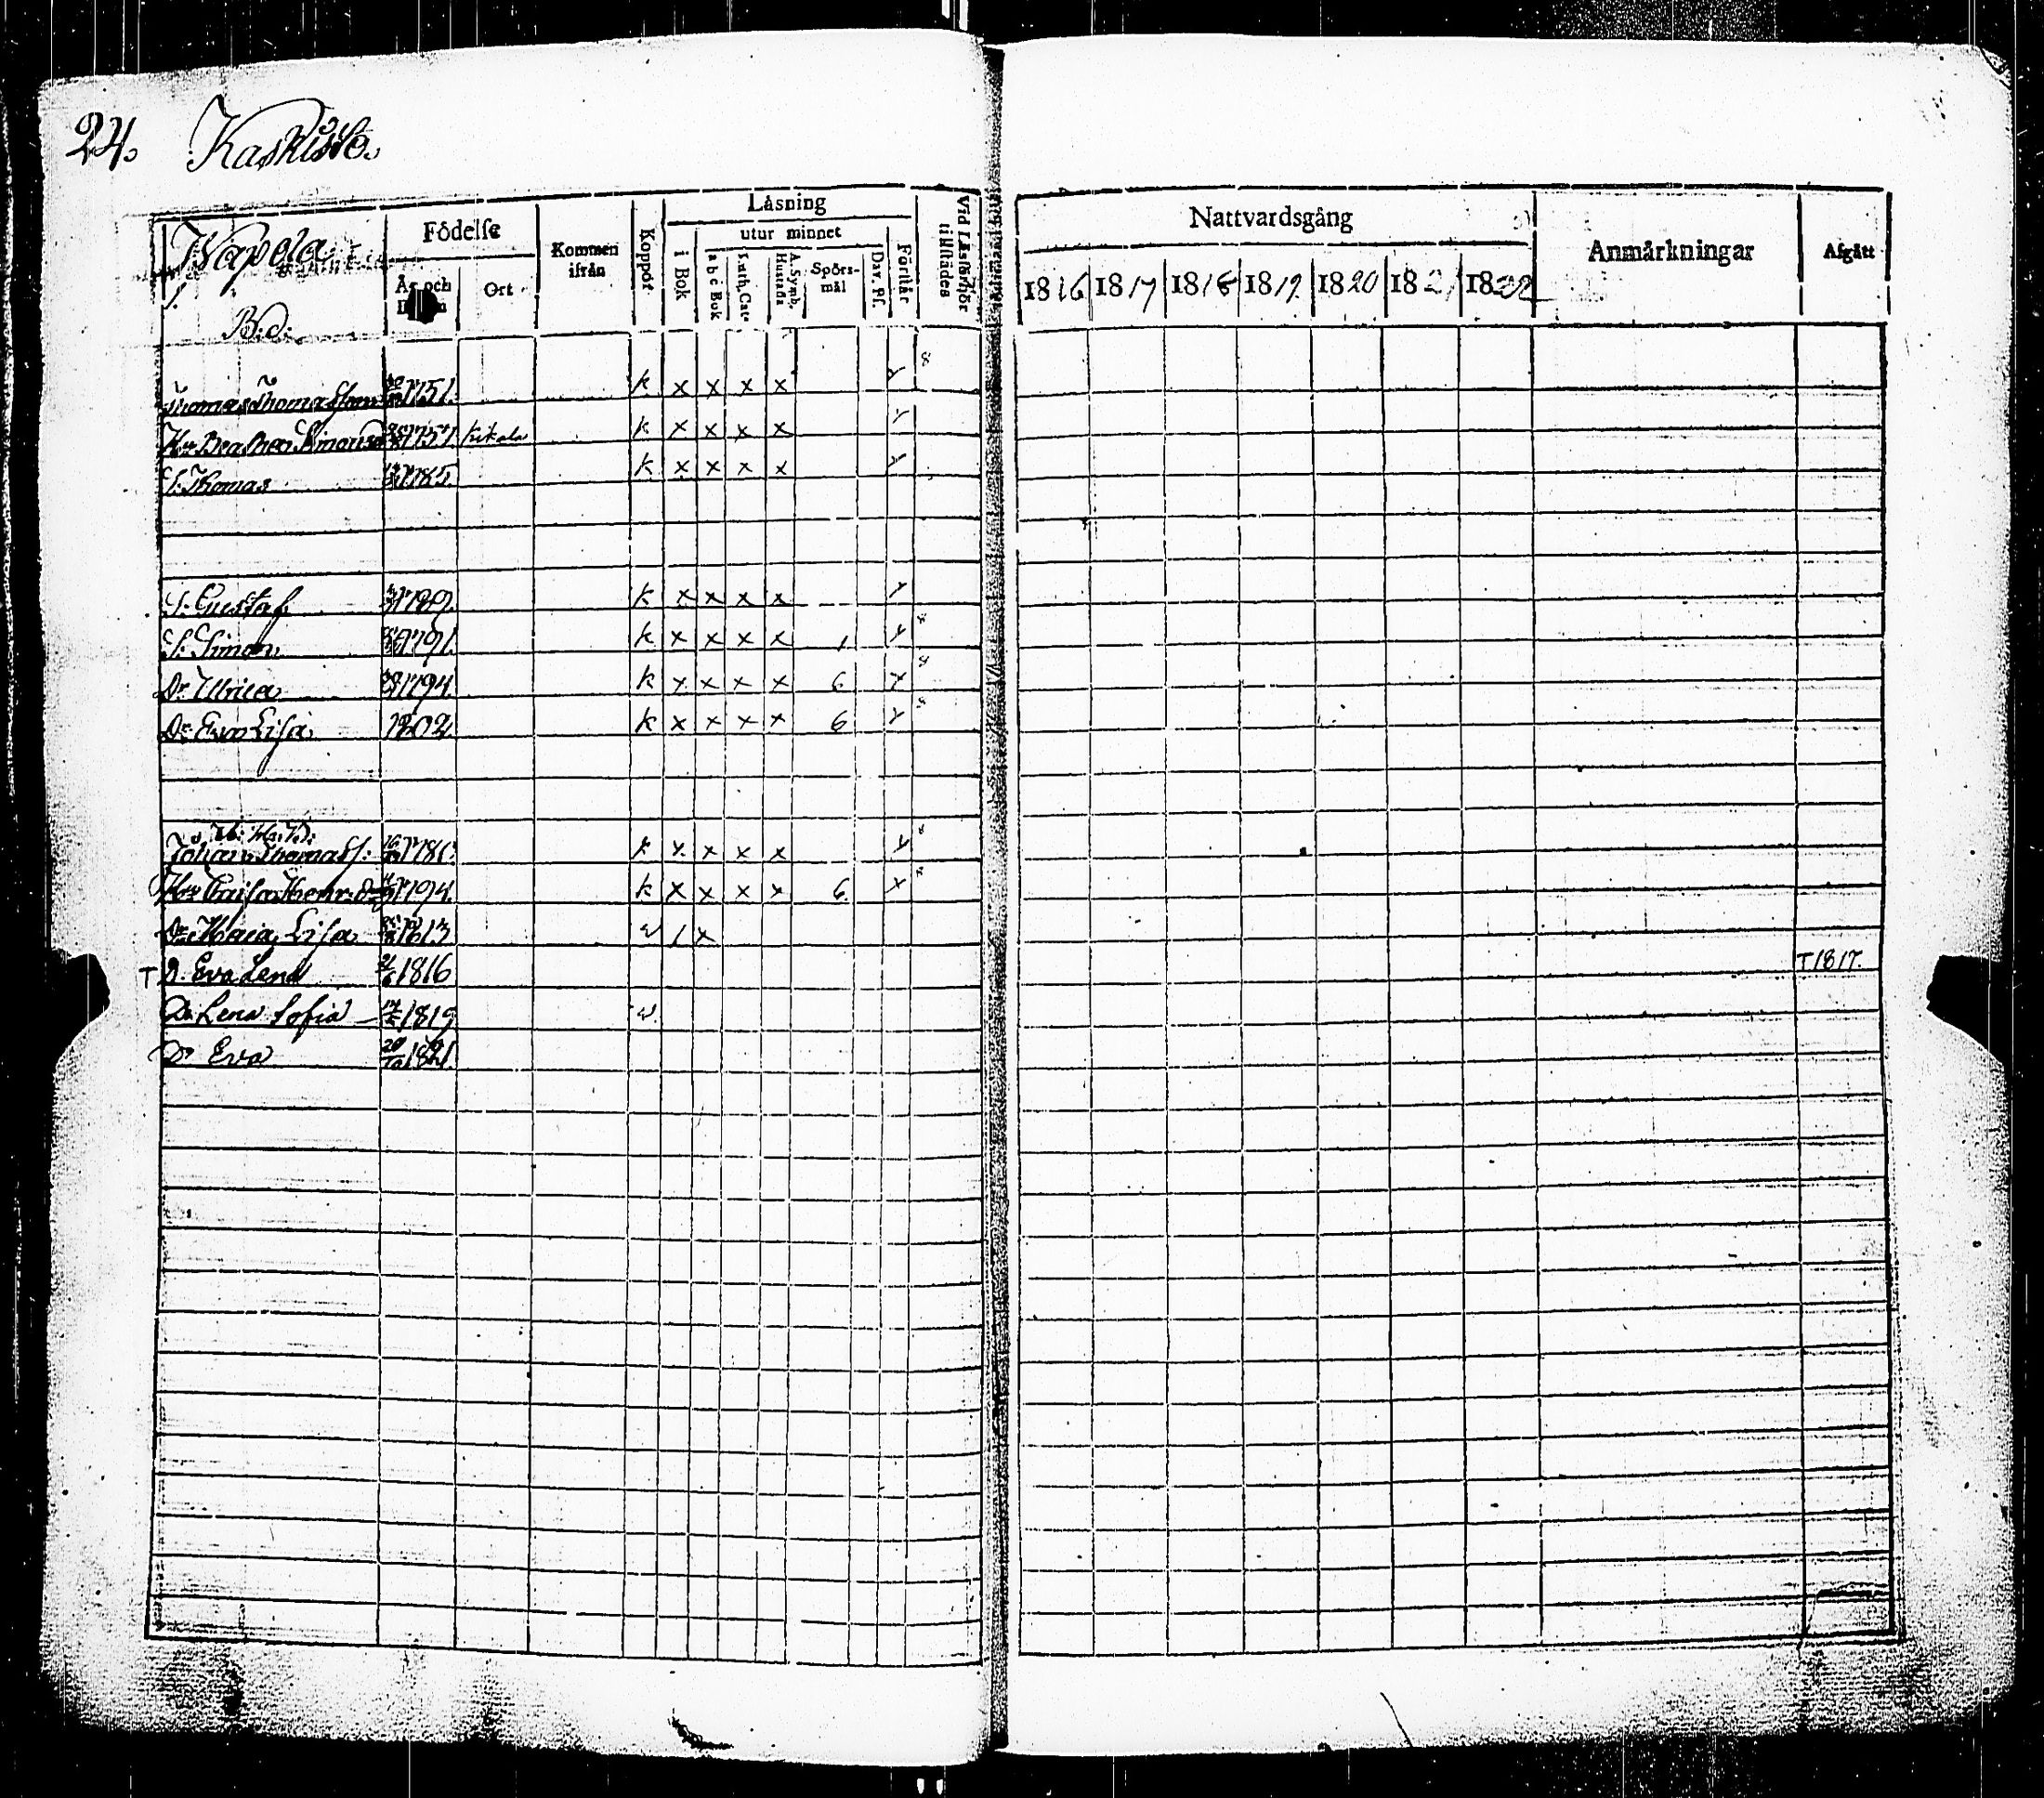 24. Kaskisto.
Wapola
Födelse
Kommen ifrån
Koppor
Läsning
Vid Läsförhör tillstädes
Nattvardsgång
Anmärkningar
Afgått
År och
Ort
i Bok
utur minnet
a b c Bok
Luth. Cat.
A. Symb. Hustafla
Spörsmål
Dav. Ps.
Förstår
1816 1817 1818 1819. 1820 182 1822
1.
B:d:
Thomas Thomasson 1751. k x x x x 8
1751. k x x x x
S. Thomas 1785. k x x x x
S. Gustaf 1789. k x x x x
S. Simon 1791. k x x x x 1 8
Dr. Ulrica 1794. k x x x x 6 x 8
Dr. Eva Lisa 1802. k x x x x 6 8
Johan Thomass. 16 178 k x x x x
1794. k x x x x 6. x
Dr. Maia Lisa 1813 v / x
T D. Eva Lena 1816 T 1817.
Dr. Lena Sofia 1819 v.
Dr Eva 1821.